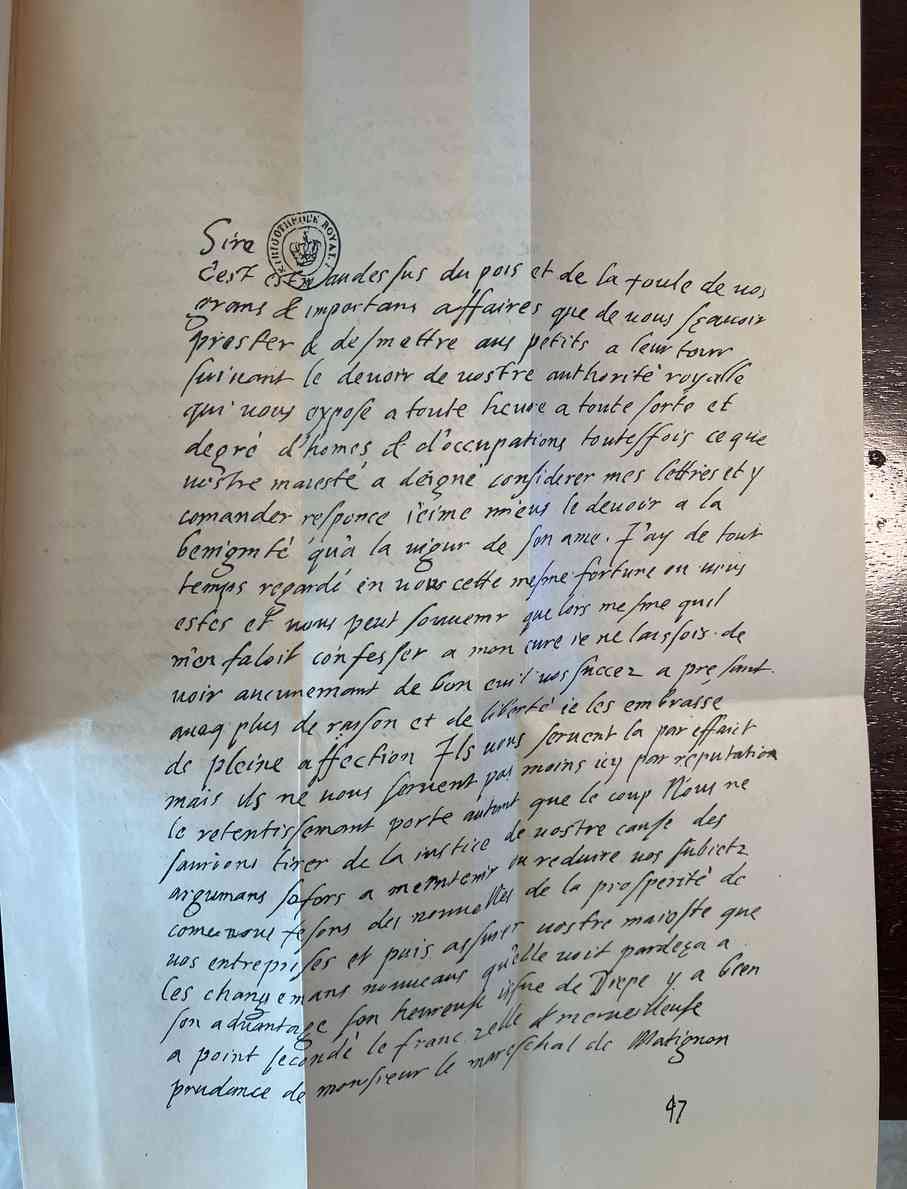 Sire
BIBLIOTHEQUE ROYALE
C'est estre audessus du pois et de la foule de vos
grans & importans affaires que de vous sçavoir
prester & desmettre aus petits a leur tour
suivant le devoir de vostre authorité royalle
qui vous expose a toute heure a toute sorte et
degré d'homes & d'occupations toutesfois ce que
vostre maiesté a deigné considerer mes lettres et y
comander responce i'eime mieus le devoir a la
benignité qu'a la vigur de son ame. J'ay de tout
temps regardé en vous cette mesme fortune ou vous
estes et vous peut souvenir que lors mesme quil
m'en faloit confesser a mon curé ie ne laissois de
voir aucunemant de bon euil vos succez a presant
aveq plus de raison et de liberté ie les embrasse
de pleine affection Ils vous servent la par effaict
mais ils ne vous servent pas moins icy par reputation
le retentissemant porte autant que le coup Nous ne
saurions tirer de la iustice de vostre cause des
argumans si fors a meintenir ou reduire vos subietz
come nous fesons des nouvelles de la prosperité de
vos entreprises et puis assurer vostre maieste que
les changemans nouveaus qu'elle voit pardeça a
son advantage son heureuse issue de Diepe y a bien
a point secondé le franc zelle & merveilleuse
prudance de monsieur le mareschal de Matignon
47